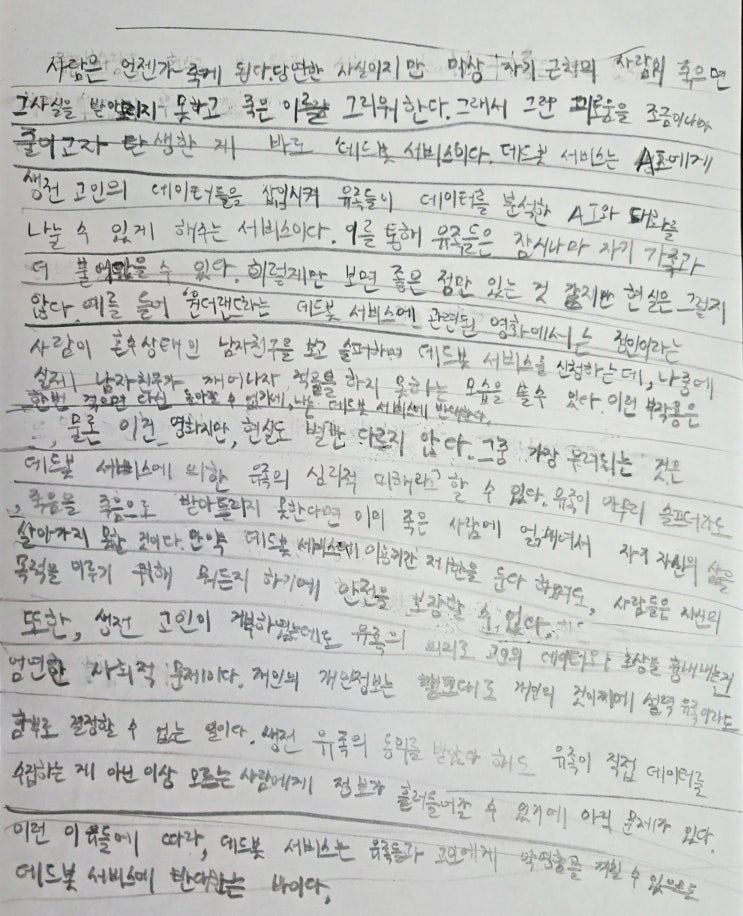 사람은 언젠가 죽게 된다.당연한 사실이지만 막상 자기 근처의 사람이 죽으면
그사실을 받아드리지 못하고 죽은 이를 그리워한다.그래서 그런 괴로움을 조금이나마
줄이고자 탄생한 게 바로 '데드봇 서비스'이다. 데드봇 서비스는 AI에게
생전 고인의 데이터들을 삽입시켜 유족들이 데이터를 분석한 AI와 대화를
나눌 수 있게 해주는 서비스이다. 이를 통해 유족들은 잠시나마 자기 가족과
더 붙어있을 수 있다. 이렇게만 보면 좋은 점만 있는 것 같지만 현실은 그렇지
않다. 예를 들어 '원더랜드'라는 데드봇 서비스에 관련된 영화에서는 정인이라는
사람이 혼수상태인 남자친구를 보고 슬퍼하며 데드봇 서비스를 신청하는데, 나중에
실제 남자친구가 깨어나자 적응을 하지 못하는 모습을 볼수 있다. 이런 부작용은
한번 겪으면 다신 돌아올 수 없기에, 나는 데드봇 서비스에 반대한다.
물론 이건 영화지만, 현실도 별반 다르지 않다. 그중 가장 우려되는 것은
데드봇 서비스에 의한 유족의 심리적 피해라고 할 수 있다. 유족이 아무리 슬프더라도
죽음을 죽음으로 받아들리지 못한다면 이미 죽은 사람에 얽매여서 자기 자신의 삶을
살아가지 못할 것이다. 만약 데드봇 서비스에 이용기간 제한을 둔다 하여도, 사람들은 자신의
목적을 이루기 위해 뭐든지 하기에 안전을 보장할 수 없다.
또한, 생전 고인이 거부하였는데도 유족의 의지로 고인의 데이터와 초상을 흉내내는건
엄연한 사회적 문제이다. 개인의 개인정보는 말그대로 개인의 것이기에 설령 유족이라도
함부로 결정할 수 없는 일이다. 생전 유족의 동의를 받았다 해도 유족이 직접 데이터를
수집하는 게 아닌 이상 모르는 사람에게 정보가 흘러들어갈 수 있기에 아직 문제가 있다.
이런 이유들에 따라, 데드봇 서비스는 유족들과 고인에게 악영향을 끼칠 수 있으므로
데드봇 서비스에 반대하는 바이다.